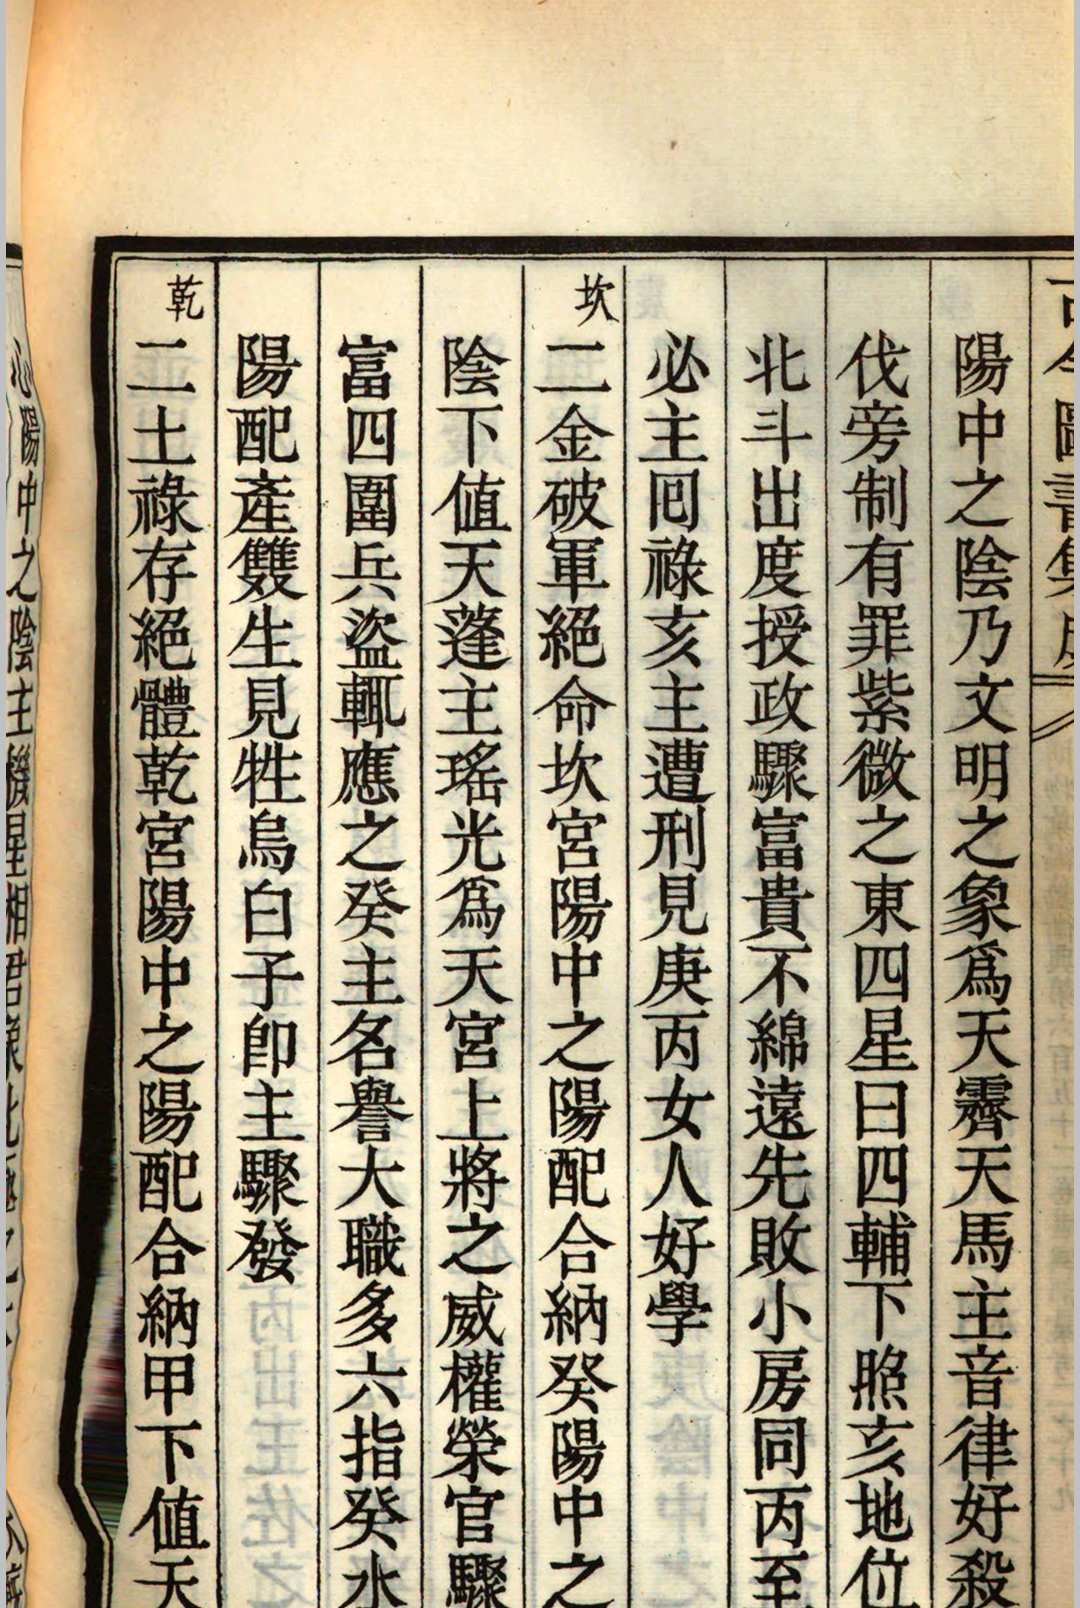 古今圖書集成
陽中之陰乃文明之象爲天霽天馬主音律好殺
伐旁制有罪紫微之東四星曰四輔下照亥地位
北斗出度授政驟富貴不綿遠先敗小房同丙至
必主囘祿亥主遭刑見庚丙女人好學
坎
二金破軍絕命坎宮陽中之陽配合納癸陽中之
陰下值天蓬主瑤光爲天宮上將之威權榮官驟
富四圍兵盜輒應之癸主名譽大職多六指癸水
陽配產雙生見牲烏白子卽主驟發
乾
二土祿存絕體乾宮陽中之陽配合納甲下值天